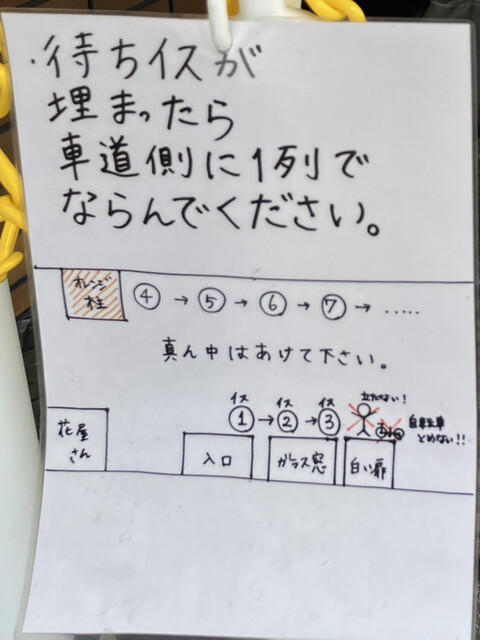 ・待ちイスが
埋まったら
車道側に1列で
ならんでください。
オレンジ
柱
④→⑤→⑥→⑦→.....
真ん中はあけて下さい。
イス イス イス
①→②→③
立たない!
自転車
とめない!!
花屋
さん
入口
ガラス窓
白い扉